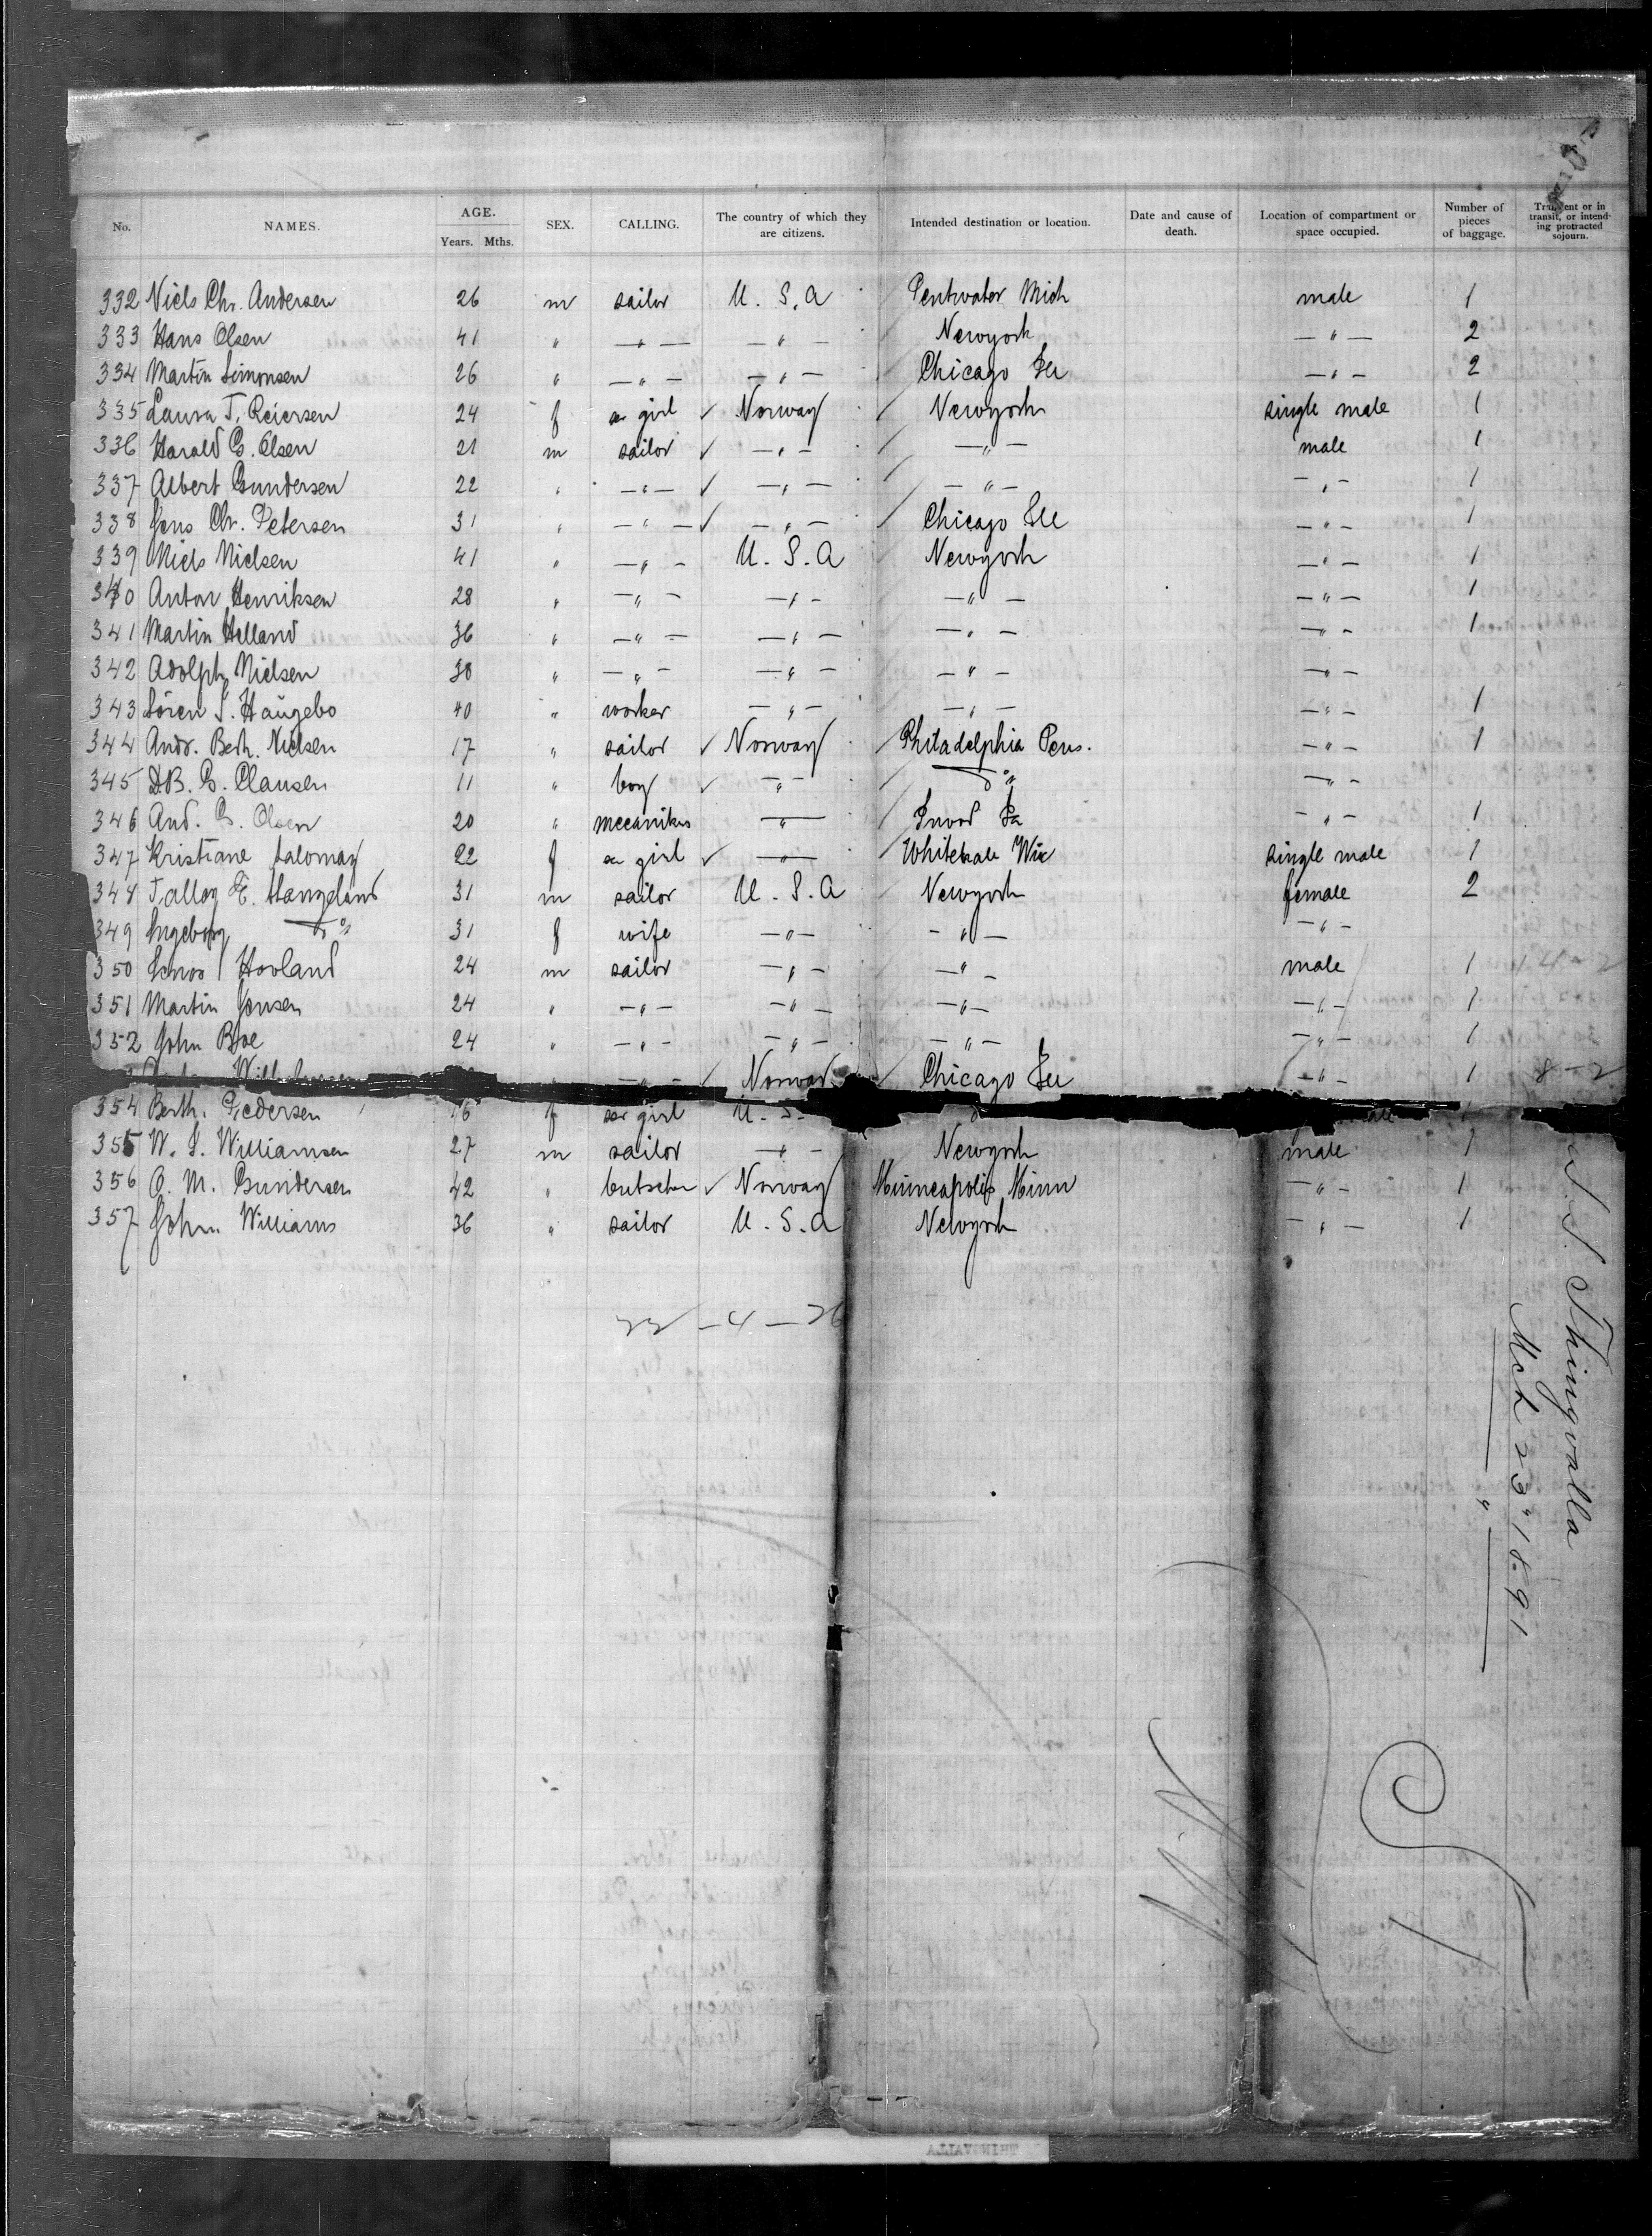 No. NAMES. AGE. Years. Mths. SEX. CALLING. The country of which they are citizens. Intended destination or location. Date and cause of death. Location of compartment or space occupied. Number of pieces of baggage. Transient or in transit, or intending protracted sojourn.
332 Niels Chr. Andersen 26 m sailor U. S. A Pentwater Mich male 1
333 Hans Olsen 41 " — " — — " — Newyork — " — 2
334 Martin Simonsen 26 " — " — — " — Chicago Ill — " — 2
335 Laura T. Reiersen 24 f girl ✓ Norway Newyork single male 1
336 Harald G. Olsen 21 m sailor ✓ — " — — " — male 1
337 Albert Gundersen 22 " — " — ✓ — " — — " — — " — 1
338 Jens Chr. Petersen 31 " — " — ✓ — " — Chicago Ill — " — 1
339 Niels Nielsen 41 " — " — U. S. A Newyork — " — 1
340 Anton Henriksen 28 " — " — — " — — " — — " — 1
341 Martin Helland 36 " — " — — " — — " — — " — 1
342 Adolph Nielsen 38 " — " — — " — — " — — " —
343 Sören S. Haugebo 40 " worker — " — — " — — " — 1
344 Andr. Beth. Nielsen 17 " sailor ✓ Norway Philadelphia Pens. — " — 1
345 G. Clausen 11 " boy ✓ — " — do — " —
346 And. G. Olsen 20 " mecanikus — " — — " — 1
347 Kristiane Salomay 22 f girl ✓ — " — Whitehale Wis single male 1
348 Tallog E. Haugeland 31 m sailor U. S. A Newyork female 2
349 Ingeborg do 31 f wife — " — — " — — " —
350 Hovland 24 m sailor — " — — " — male 1
351 Martin Jonsen 24 " — " — — " — — " — — " — 1
352 John Boe 24 " — " — — " — — " — — " — 1
— " — ✓ Norway Chicago Ill — " — 1 8 – 2
354 Berth. Pedersen 16 f girl U. S.
355 W. S. Williamsen 27 m sailor — " — Newyork male 1
356 O. M. Gundersen 42 " butscher ✓ Norway Minneapolis Minn — " — 1
357 John Williams 36 " sailor U. S. A Newyork — " — 1
S. S. Thingvalla
Mch 23" 1891
THINGVALLA